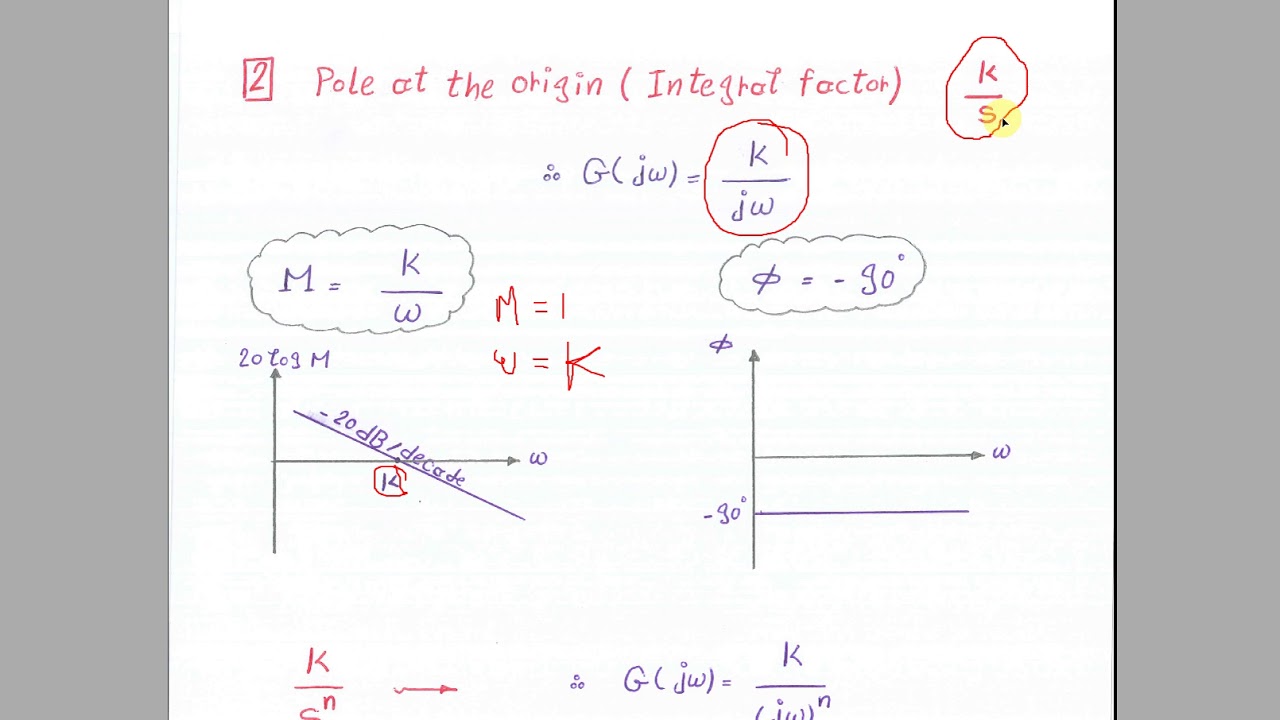 2 Pole at the origin ( Integral factor) K/s
∴ G(jω) = K/jω
M = K/ω
ϕ = - 90°
M = 1
ω = K
20 log M
ϕ
-20dB/decade
ω
ω
K
-90°
K/sⁿ
∴ G(jω) = K/(jω)ⁿ